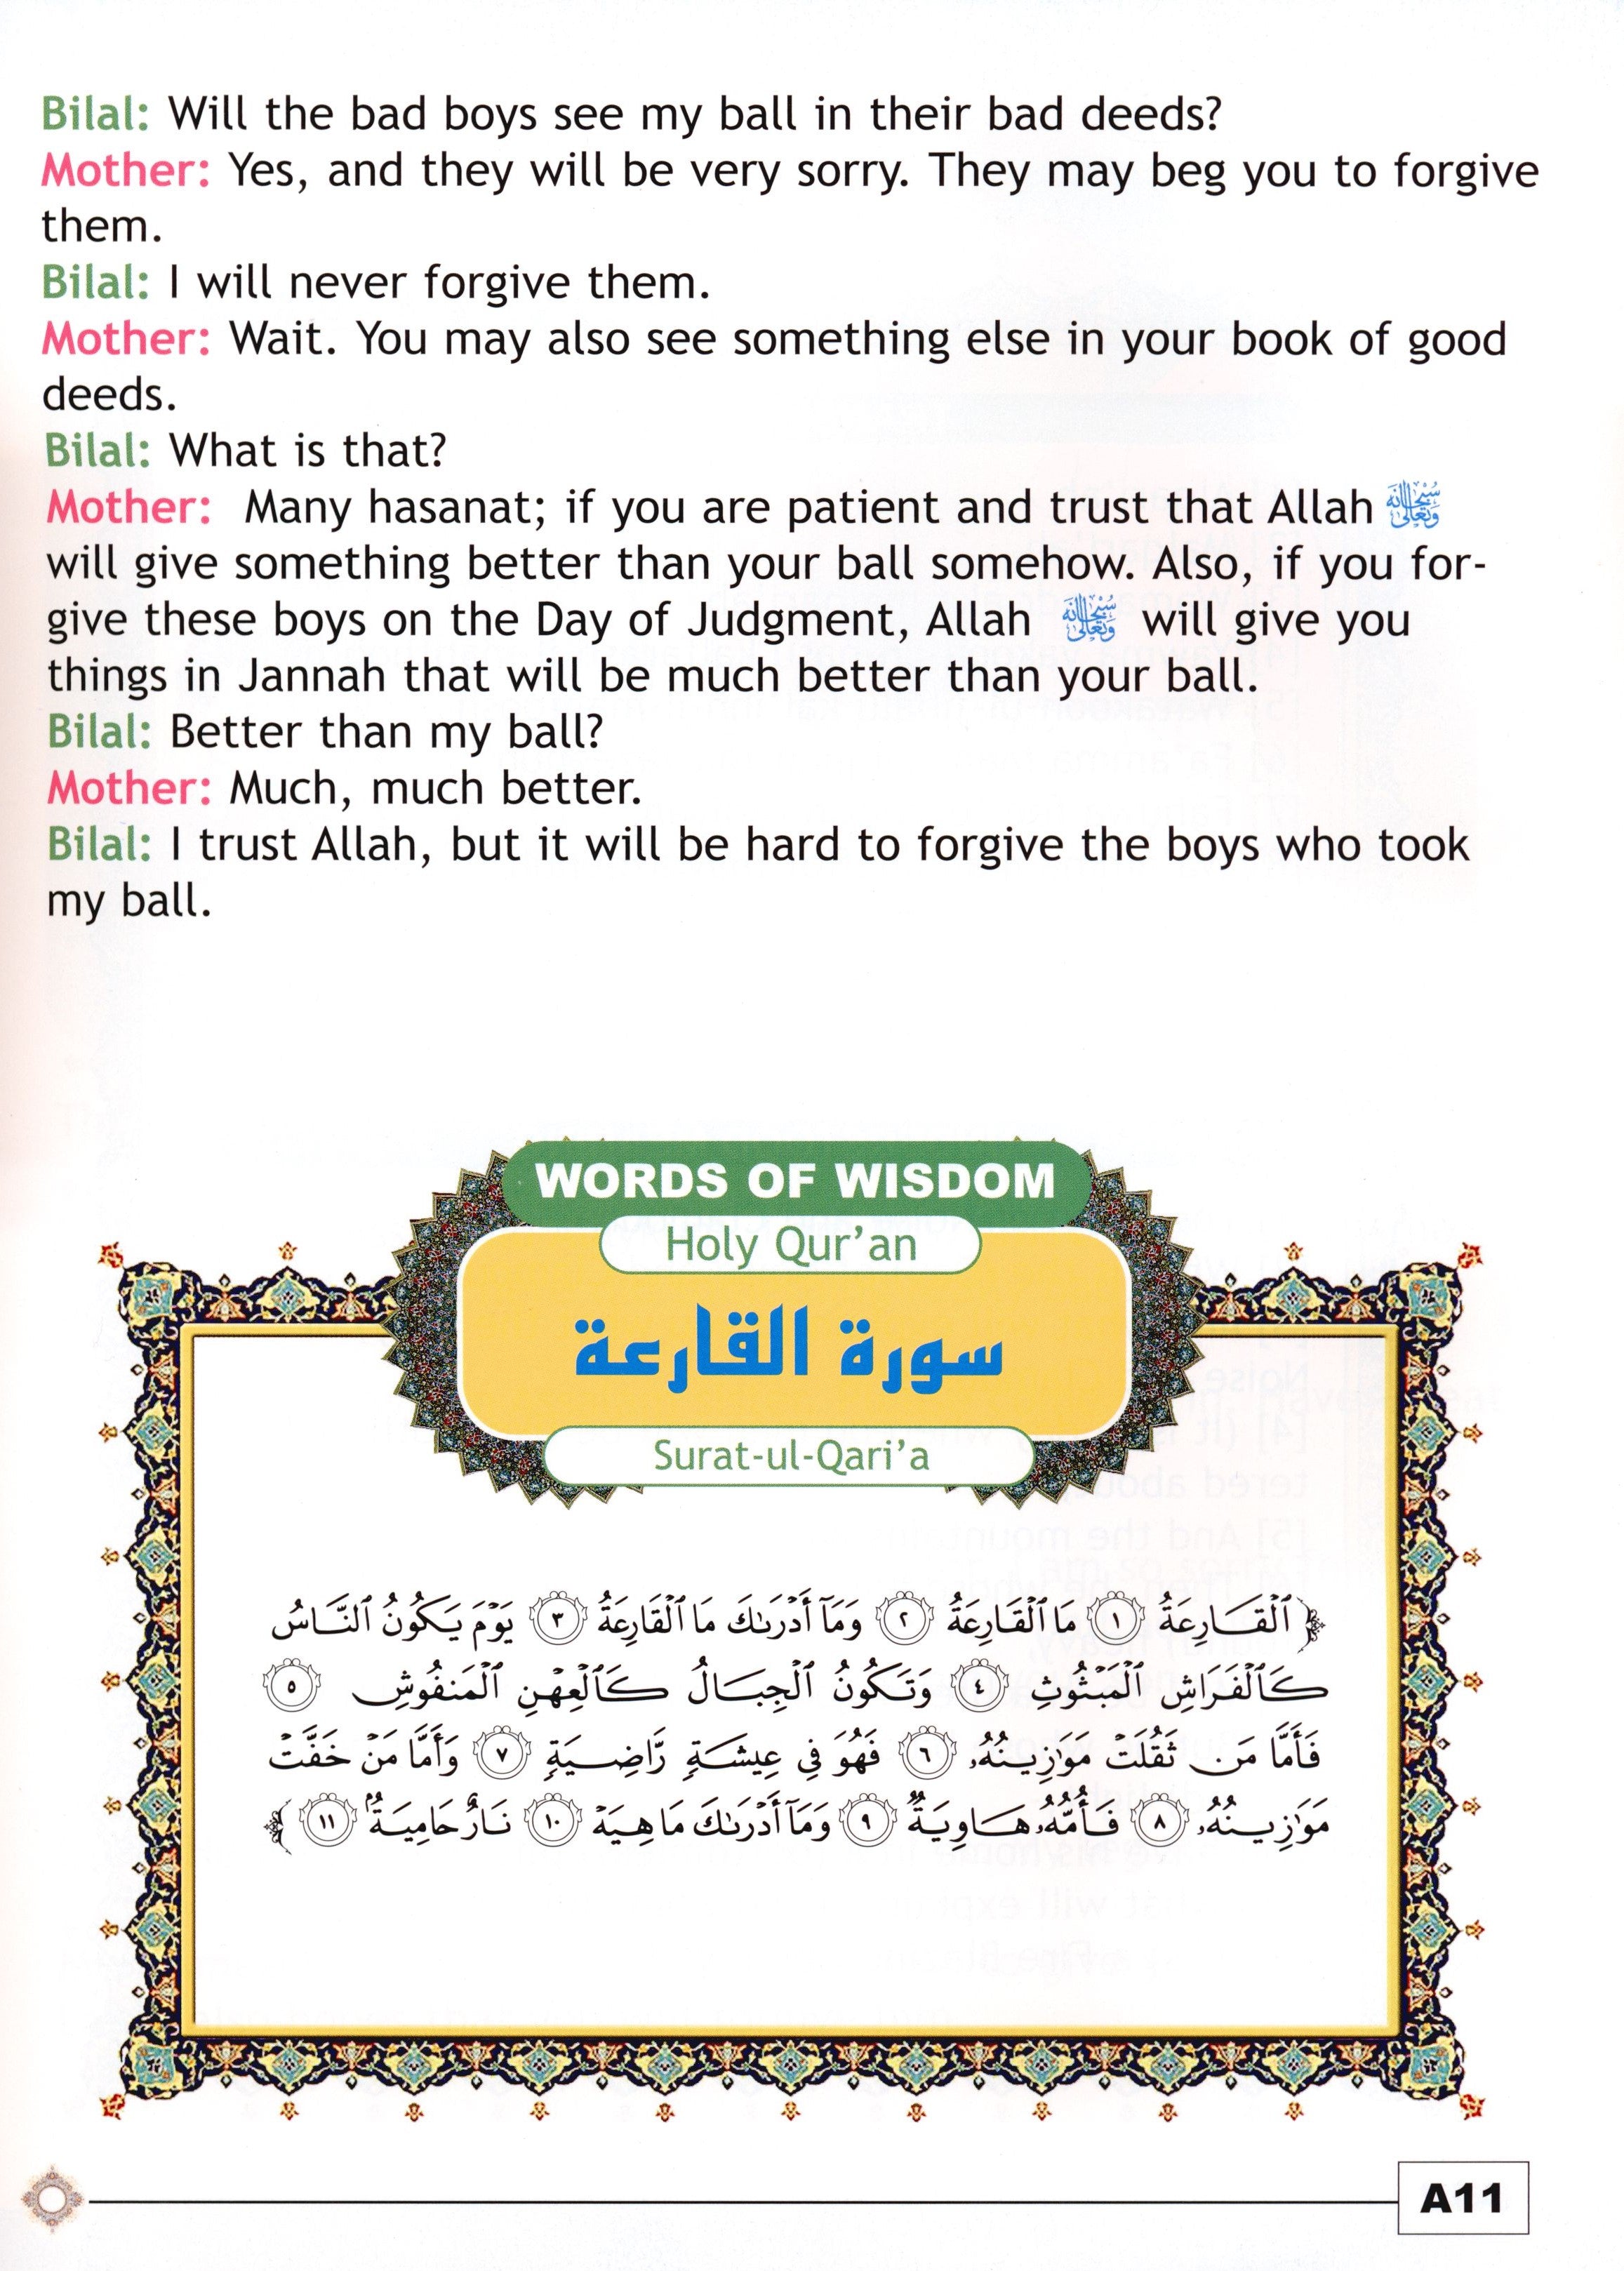 Bilal: Will the bad boys see my ball in their bad deeds?
Mother: Yes, and they will be very sorry. They may beg you to forgive
them.
Bilal: I will never forgive them.
Mother: Wait. You may also see something else in your book of good
deeds.
Bilal: What is that?
Mother: Many hasanat; if you are patient and trust that Allah سُبْحَانَهُ وَتَعَالَىٰ
will give something better than your ball somehow. Also, if you for-
give these boys on the Day of Judgment, Allah سُبْحَانَهُ وَتَعَالَىٰ will give you
things in Jannah that will be much better than your ball.
Bilal: Better than my ball?
Mother: Much, much better.
Bilal: I trust Allah, but it will be hard to forgive the boys who took
my ball.
WORDS OF WISDOM
Holy Qur’an
سورة القارعة
Surat-ul-Qari’a
﴿ ٱلْقَارِعَةُ ١ مَا ٱلْقَارِعَةُ ٢ وَمَآ أَدْرَىٰكَ مَا ٱلْقَارِعَةُ ٣ يَوْمَ يَكُونُ ٱلنَّاسُ
كَٱلْفَرَاشِ ٱلْمَبْثُوثِ ٤ وَتَكُونُ ٱلْجِبَالُ كَٱلْعِهْنِ ٱلْمَنفُوشِ ٥
فَأَمَّا مَن ثَقُلَتْ مَوَٰزِينُهُۥ ٦ فَهُوَ فِى عِيشَةٍ رَّاضِيَةٍ ٧ وَأَمَّا مَنْ خَفَّتْ
مَوَٰزِينُهُۥ ٨ فَأُمُّهُۥ هَاوِيَةٌ ٩ وَمَآ أَدْرَىٰكَ مَا هِيَهْ ١٠ نَارٌ حَامِيَةٌۢ ١١ ﴾
A11